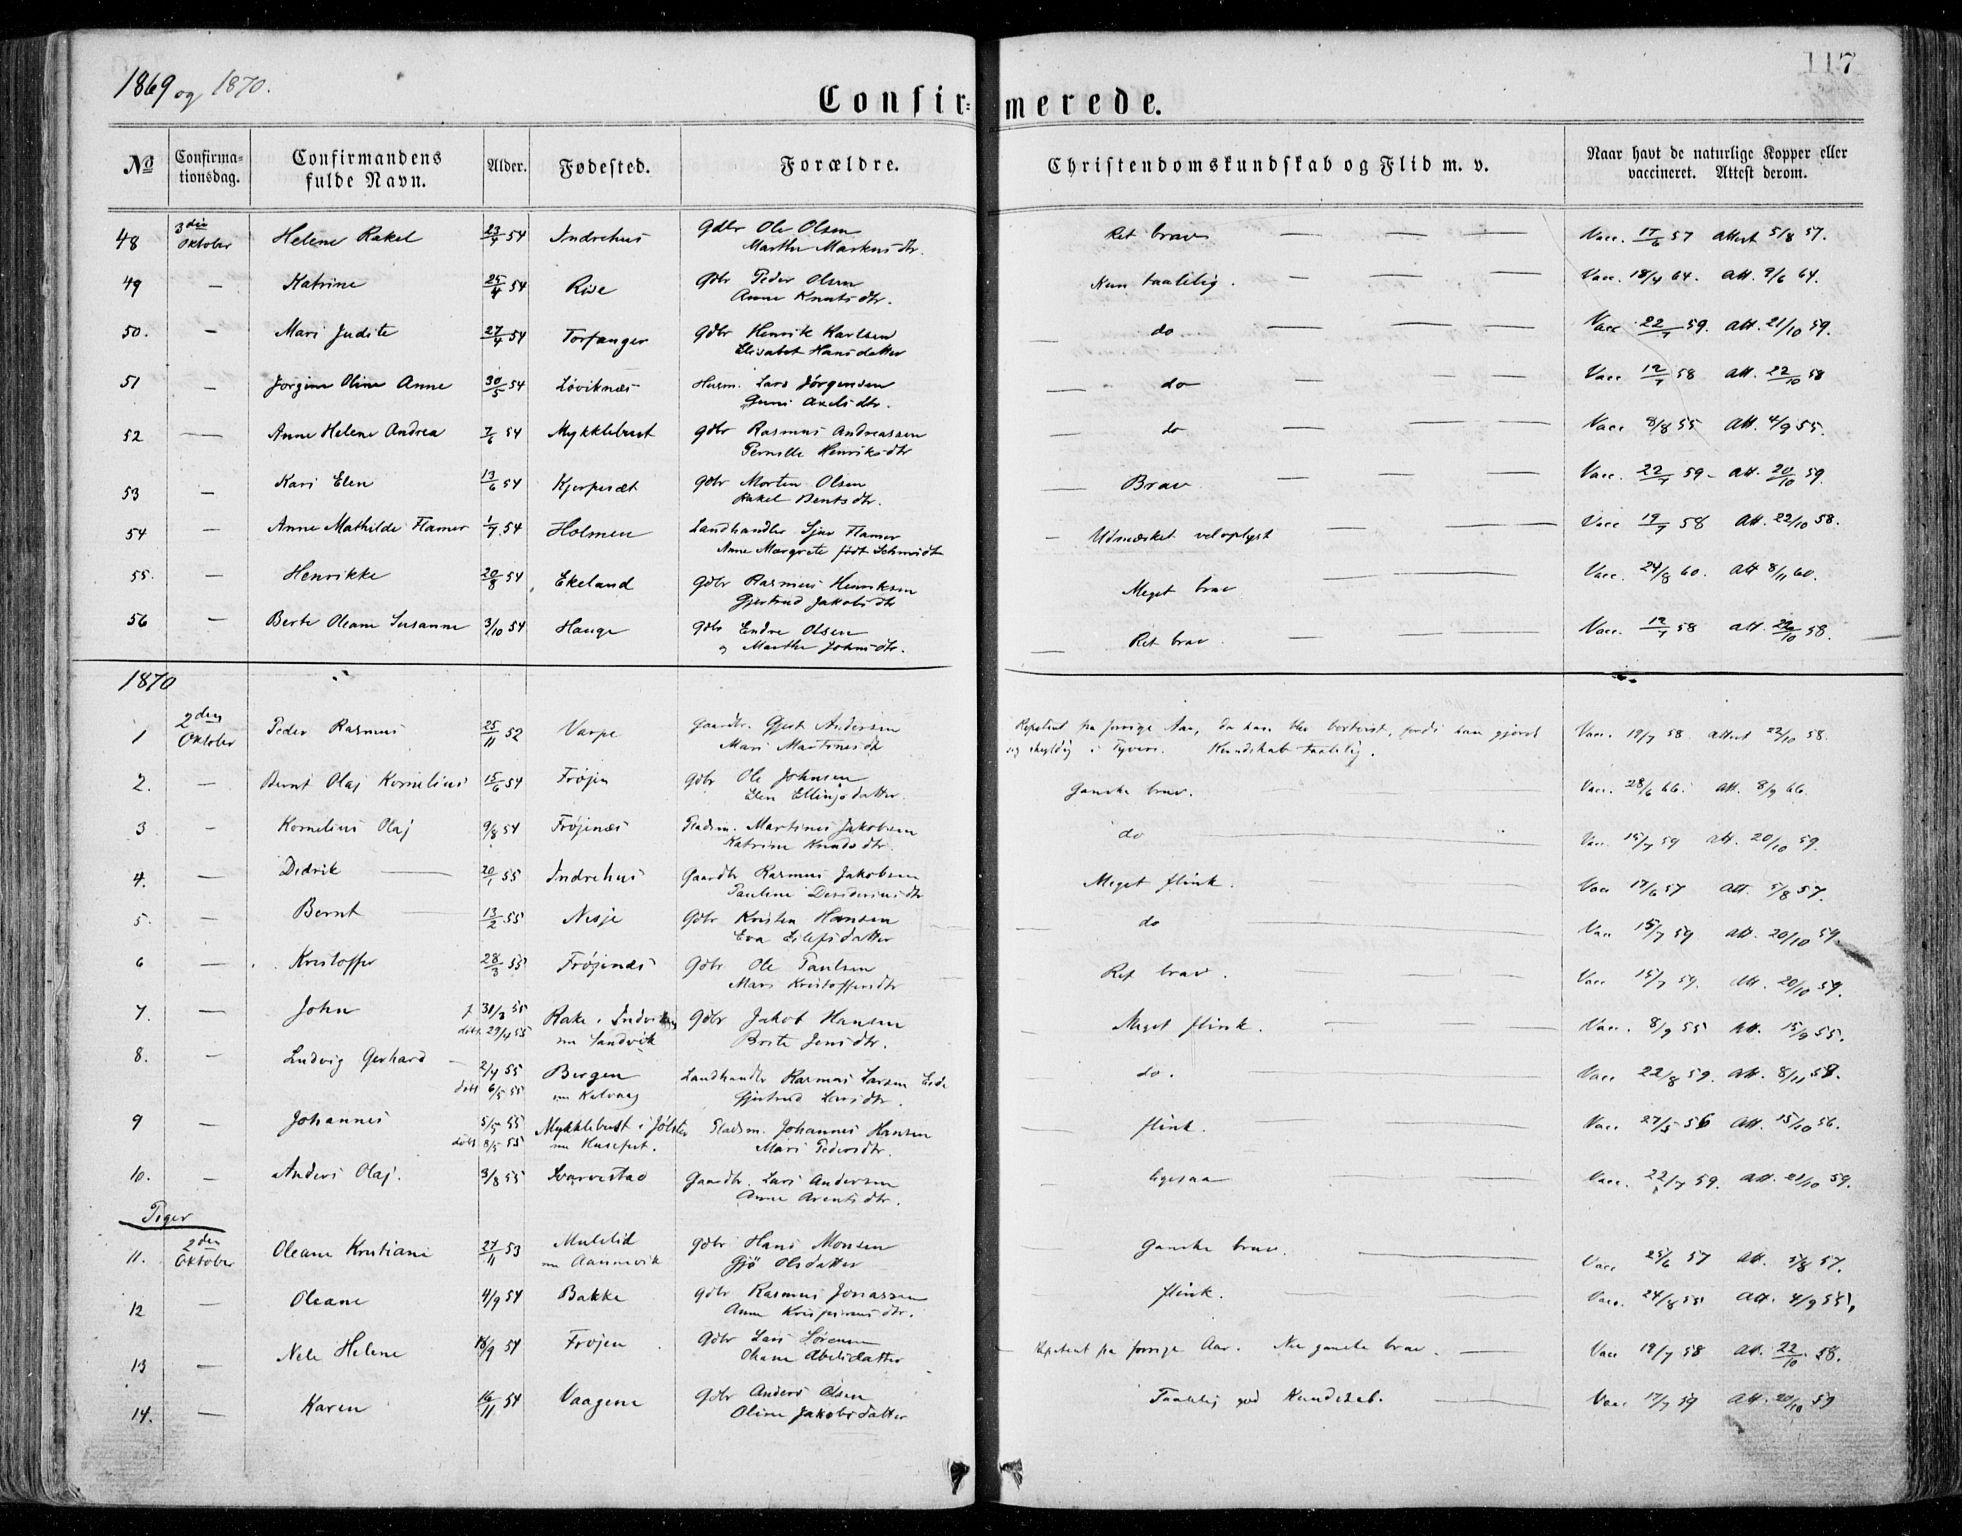 1869 og 1870.
117
Confirmerede.
No Confirmationsdag. Confirmandens fulde Navn. Alder. Fødested. Forældre. Christendomskundskab og Flid m. v. Naar havt de naturlige Kopper eller vaccineret. Attest derom.
48 3die Oktober Helene Rakel 23/4 54 Indrehus Gdbr Ole Olsen Ret brav — — — — Vacc. 17/6 57 Attest 5/8 57.
Marthe Markusdtr.
49 — Katrine 25/4 54 Rise Gbr Peder Olsen Kun taalelig. — — — Vacc. 18/4 64. Att. 9/6 64.
Anne Knutsdtr.
50. — Mari Judite 27/4 54 Torfanger Gdbr Henrik Karlsen — do — — — — Vacc 22/7 59. Att. 21/10 59.
Elisabet Hansdatter
51 — Jorgine Oline Anne 30/5 54 Løviknæs Husm. Lars Jørgensen — do — — — — Vacc 12/7 58 Att. 22/10 58
Guni Axelsdtr.
52 — Anne Helene Andrea 7/6 54 Mykklebust Gdbr Rasmus Andreassen — do — — — Vacc 8/8 55 Att. 4/9 55.
Pernille Henriksdtr
53 — Kari Elen 13/6 54 Kjerpesæt Gdbr Morten Olsen — Brav — — — Vacc. 22/7 59 - Att. 20/10 59.
Rakel Bentsdtr.
54 — Anne Mathilde Flamer 1/7 54 Holmen Landhandler Sjur Flamer — Udmærket veloplyst — — — Vacc 19/7 58 Att. 22/10 58.
Anne Margrete født Schmidt
55. — Henrikke 20/8 54 Ekeland Gdbr Rasmus Henriksen Meget brav Vacc. 24/8 60. Att 8/11 60.
Gjertrud Jakobsdtr
56 — Berte Oleane Susanne 3/10 54 Hauge Gdbr Endre Olsen — Ret brav. — — — Vacc. 12/7 58 Att. 22/10 58.
og Marthe Johnsdtr.
1870
1 2den Oktober Peder Rasmus 25/11 52 Varpe Gaardbr. Gjert Andersen Repetent fra forrige Aar, da han blev bortvist, fordi han gjorde Vacc. 19/7 58. Attest 22/10 58.
Mari Martinesdtr sig skyldig i Tyveri. Kundskab taalelig.
2. — Bernt Olaj Kornelius 15/6 54 Frøjen Gdbr Ole Johnsen Ganske brav. — — Vacc. 28/6 66. Att. 8/9 66.
Elen Ellingsdatter.
3 — Kornelius Olaj 9/8 54 Frøjenæs Pladsm. Martines Jakobsen do — Vacc. 15/7 59 Att. 20/10 59.
Katrine Knudsdtr.
4. — Didrik — 20/1 55 Indrehus Gaardbr Rasmus Jakobsen Meget flink. — Vacc 17/6 57 Att. 5/8 57.
Pauline Desideriusdtr
5. — Bernt — 13/2 55 Nesje Gdbr Kristen Hansen — do — Vacc 15/7 59 Att. 20/10 59.
Eva Eilefsdatter
6 — Kristoffer 28/3 55 Frøjenæs Gdbr Ole Paulsen Ret brav. — Vacc 15/7 59. Att. 20/10 59.
Mari Kristoffersdtr
7. — John f 31/3 55 Rake i Indviken Gdbr Jakob Hansen — Meget flink. — — Vacc. 8/9 55 Att. 15/9 55.
døbt. 29/4 55 nu Sandvik Brite Jensdtr.
8. — Ludvig Gerhard — 2/4 55 Bergen Landhandler Rasmus Larsen Eide do. — Vacc 22/8 59. Att. 8/11 59.
døbt 6/5 55 nu Kalvaag Gjertrud Larsdtr.
9 — Johannes 5/5 55 Mykklebust i Jølster Pladsm. Johannes Hansen flink. — — Vacc. 27/5 56 Att. 15/10 56.
døbt 8/5 55 nu Husefest. Mari Pedersdtr.
10. — Anders Olaj. 3/8 55 Gaardbr. Lars Andersen — ligesaa — — Vacc. 22/7 59. Att. 21/10 59.
Anne Arentsdtr.
Piger
11. 2den Oktober Oleane Kristiane 27/11 53 Mulelid Gdbr Hans Monsen — Ganske brav. — Vacc 25/6 57 Att. 5/8 57.
nu Aannevik Gjø Olsdatter
12 — Oleane 4/9 54 Bakke Gdbr Rasmus Jonassen — flink. — — Vacc. 24/8 55 Att. 4/9 55,
Anne Krispinusdtr.
13 — Nele Helene 18/9 54 Frøjen Gdbr Lars Sørensen — Repetent fra forrige Aar. Nu ganske brav. — Vacc 19/7 58 Att. 22/10 58.
Oleane Abelsdatter
14. — Karen 16/11 54 Vaagene Gdbr Anders Olsen Taalelig god Kundskab. — Vacc 17/7 59 Att. 20/10 59
Oline Jakobsdatter